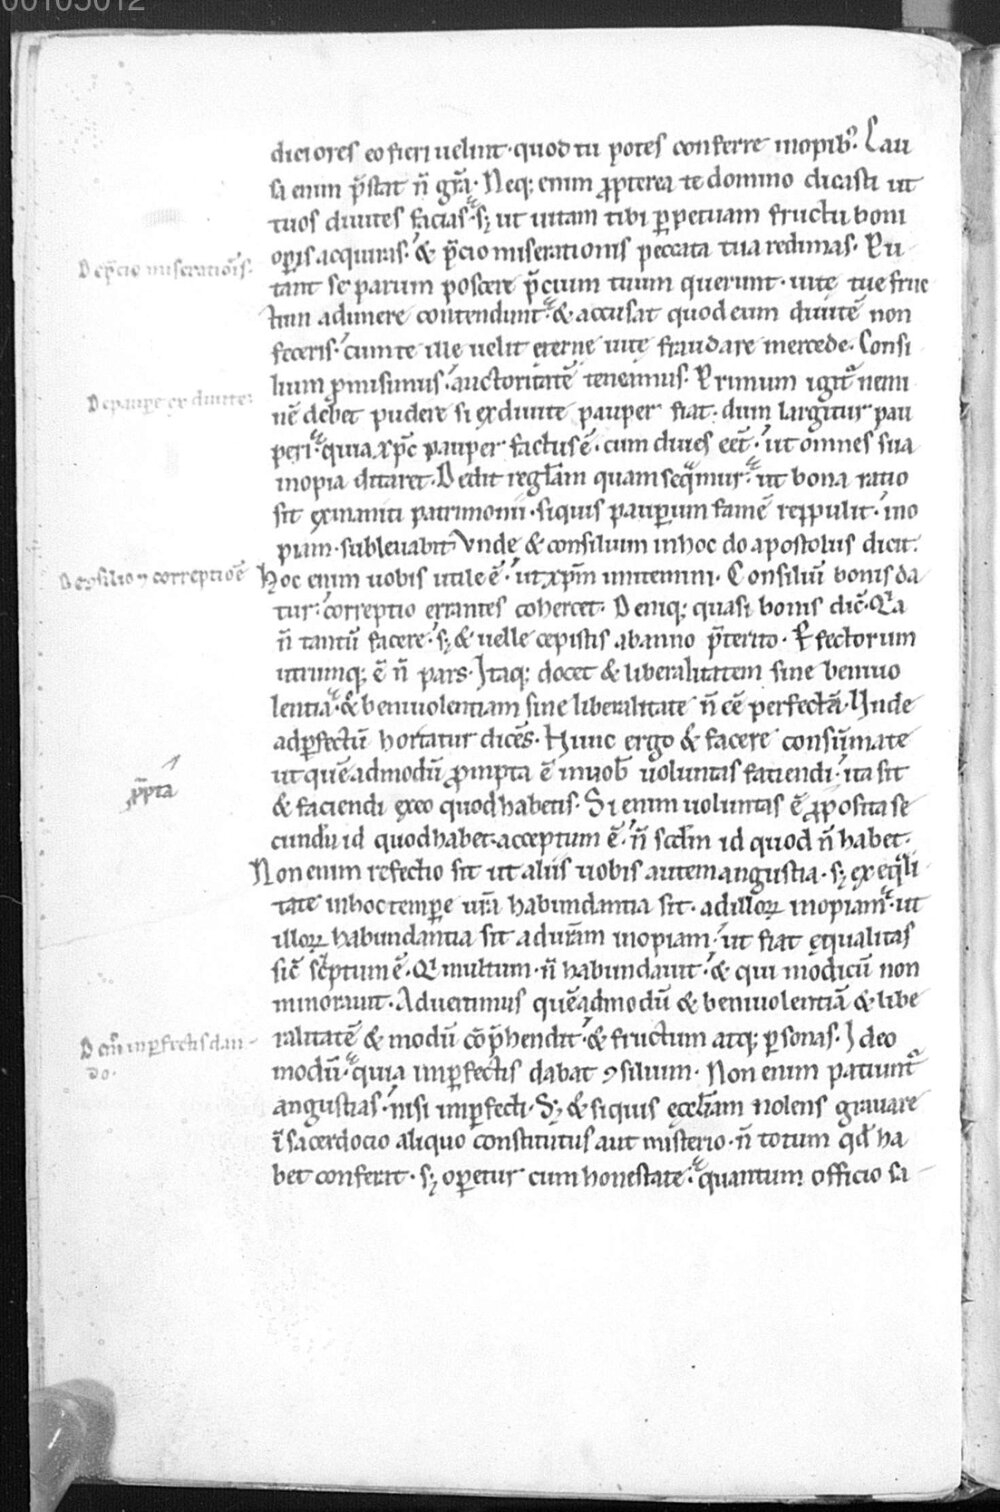 00105012
ditiores eo fieri uelint · quod tu potes conferre inopib᷒. Cau
sa enim p̄stat n̄ gr̄a · Neq; enim ꝓpterea te domino dicasti ut
tuos diuites facias · sꝫ ut uitam tibi ꝑpetuam fructu boni
oꝑis acquiras · & p̄cio miserationis peccata tua redimas · Pu
De p̄cio miseratiōis.
tant se parum poscere p̄cium tuum querunt · uitę tuę fruc
tum adimere contendunt · & accusat quod eum diuitē non
feceris · cum te ille uelit eterne uitę fraudare mercede · Consi
lium ꝓmisimus · auctoritatē teneamus · Primum igit᷑ nemi
De pauꝑe ex diuite.
nē debet pudere si ex diuite pauper fiat · dum largitur pau
peri · quia xp̄c pauper factus ē · cum diues eēt · ut omnes sua
inopia ditaret · Dedit regl̄am quam seq̄mur · ut bona ratio
sit exinaniti patrimonii · siquis pauꝑum famē reppulit · ino
piam · subleuabit Vnde & consilium in hoc do apostolus dicit ·
De ꝯsilio ⁊ correptiōe
hoc enim uobis utile ē · ut xp̄m imitemini · Consiliū bonis da
tur · correptio errantes cohercet · Deniq; quasi bonis dic̄ · Q̄a
n̄ tantū facere · sꝫ & uelle cepistis ab anno p̄terito · Pfectorum
utrumq; ē n̄ pars · Itaq; docet & liberalitatem sine beniuo
lentia · & beniuolentiam sine liberalitate n̄ eē perfectā · Unde
ad ꝑfectū hortatur dicēs · Hunc ergo & facere consūmate
ut quēadmodū ꝓmpta ē in uob̄ uoluntas faciendi · ita sit
ꝓ̄pta
& faciendi ex eo quod habetis · Si enim uoluntas ē ꝓposita se
cundū id quod habet · acceptum ē · n̄ scd̄m id quod n̄ habet ·
Non enim refectio sit ut aliis uobis autem angustia · sꝫ ex eq̄li
tate in hoc tempꝑe ur̄a habundantia sit · ad illoꝝ inopiam · ut
illoꝝ habundantia sit ad ur̄am inopiam · ut fiat ęqualitas
sic̄ sc̄ptum ē · Qi multum · n̄ habundauit · & qui modicū non
minorauit · Aduertimus quēadmodū & beniuolentiā & libe
ralitatē & modū cōp̄hendit · & fructum atq; ꝑsonas · Ideo
modū · quia imꝑfectis dabat ꝯsilium · Non enim patiunt᷑
angustias · nisi imꝑfecti · Sꝫ & siquis ęccl̄iam nolens grauare
ī sacerdocio aliquo constitutus aut misterio · n̄ totum qd̄ ha
bet conferat · sꝫ oꝑetur cum honestate · quantum officio sa